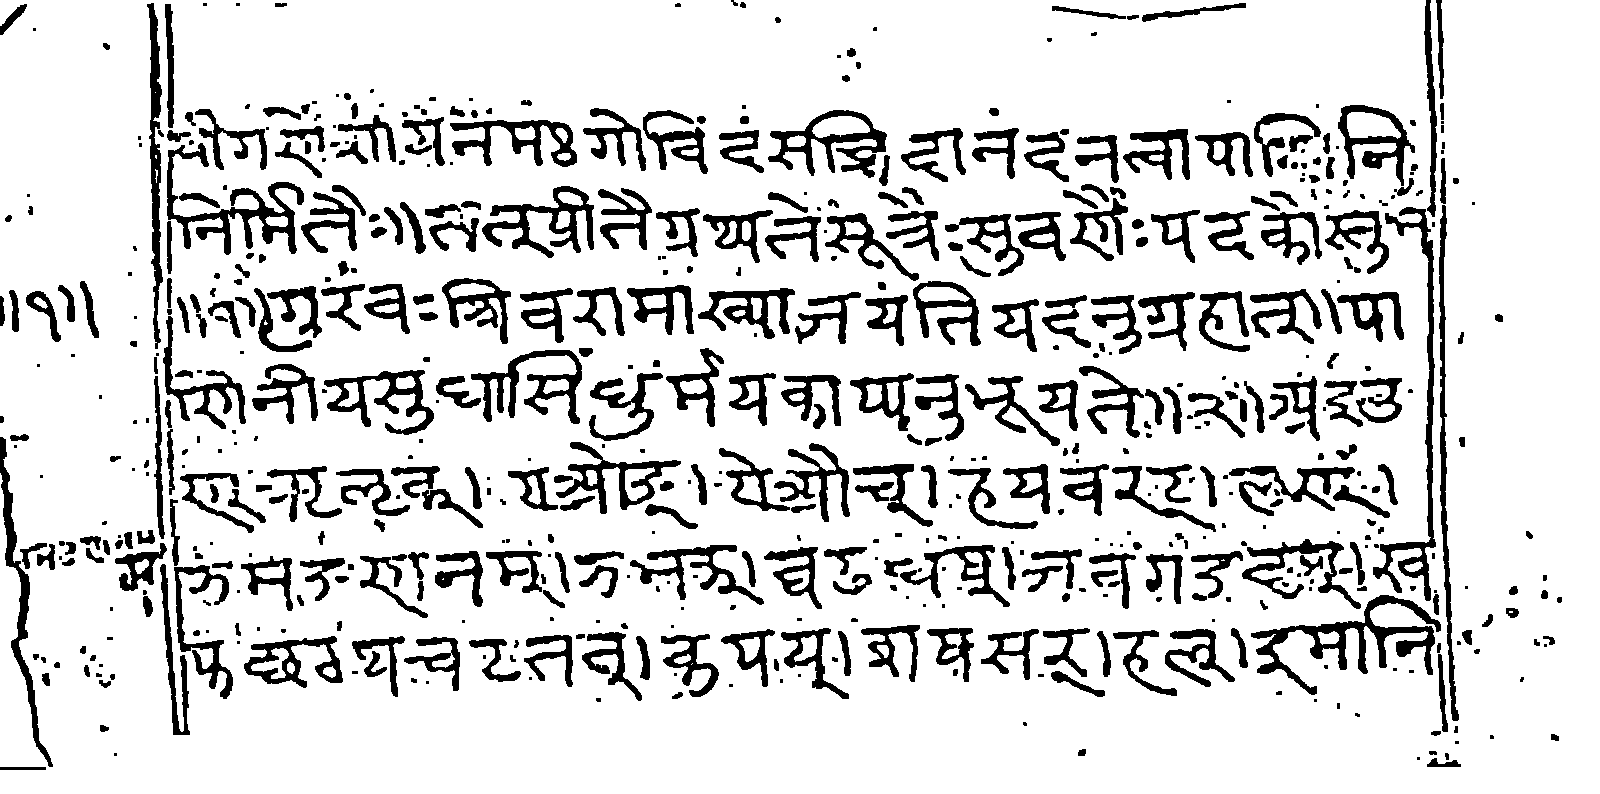 श्रीगणेशाय नमः गोविंदं सच्चिदानंदं नत्वा पाणिनि
निर्मितैः॥ तत्तत्प्रीतै ग्रथ्यते सूत्रैः सुवर्णैः पदकौस्तुभ
॥१॥ गुरवः शिवरामाख्या जयंति यदनुग्रहात्॥ पा
णिनीयसुधासिंधुर्मयकाप्यनुभूयते॥२॥ अइउ
ण् ऋऌक्। एओङ्। ऐऔच्। हयवरट्। लण्।
ञमङणनम्। झभञ्। घढधष्। जबगडदश्। ख
फछठथचटतव्। कपय्। शषसर्। हल्। इमानि
॥१॥